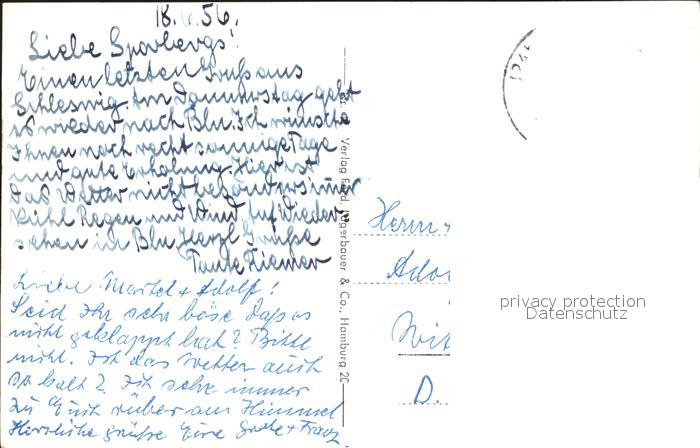 18.6.56.
Liebe Sporbergs!
Einen letzten Gruß aus
Schleswig. Am Donnerstag geht
es wieder nach Bln. Ich wünsche
Ihnen noch recht sonnige Tage
und gute Erholung. Hier ist
das Wetter nicht besonders immer
kühl Regen und Wind. Auf Wieder-
sehen in Bln Herzl. Grüße
Tante Kiemer
Liebe Martel + Adolf!
Seid Ihr sehr böse daß es
nicht geklappt hat? Bitte
nicht. Ist das Wetter auch
so kalt? Ich sehe immer
zu Euch rüber am Himmel
Herzliche Grüße Eure Grete + Franz.
Verlag Ferd. Lagerbauer & Co., Hamburg 20
Herrn +
Ado
Wit
D.
privacy protection
Datenschutz